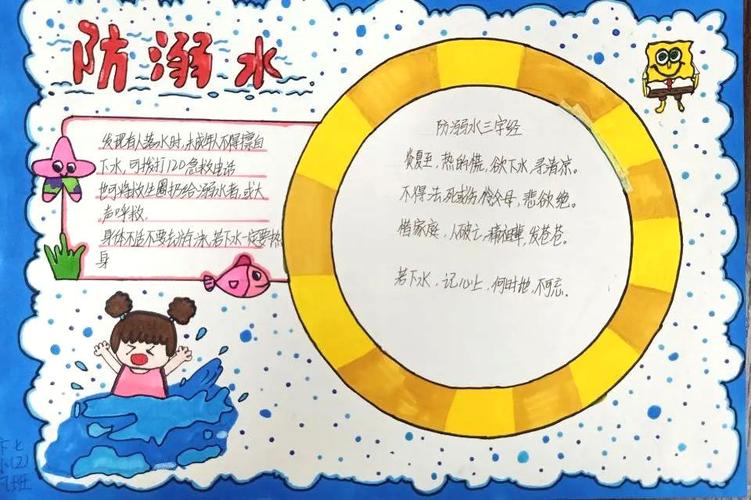 防溺水
发现有人落水时,未成年人不得擅自
下水,可拨打120急救电话
也可将救生圈扔给溺水者,或大
声呼救。
身体不适不要去游泳,若下水一定要热
身
防溺水三字经
炎夏至,热的慌,欲下水,寻清凉。
不得法,死或伤,父母,悲欲绝。
惜家庭,人破亡,发苍苍。
若下水,记心上,何时地,不可忘。